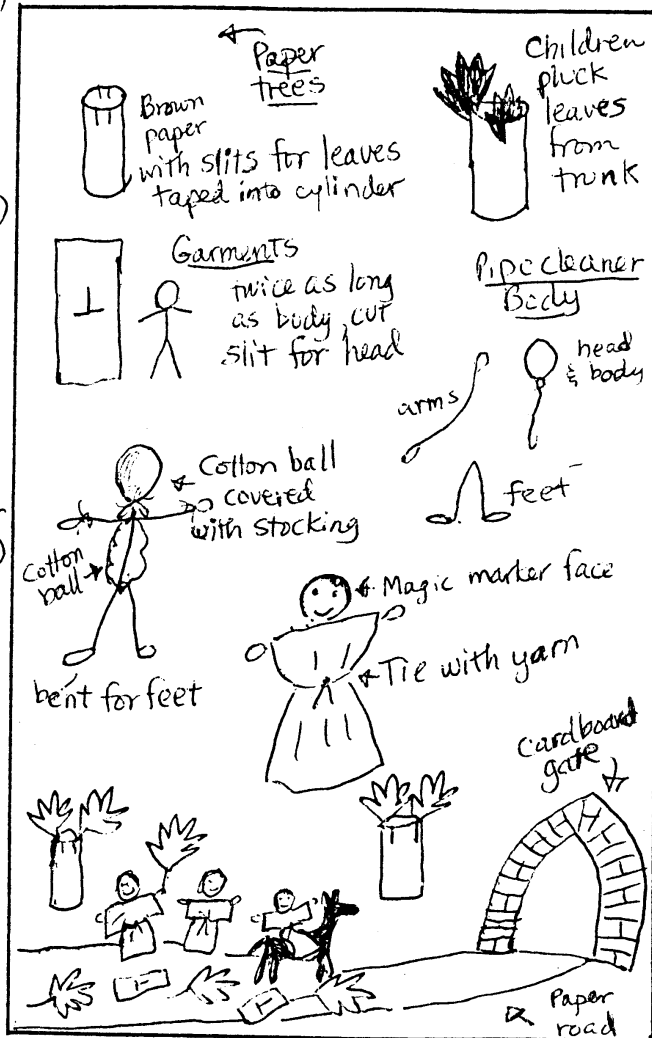 Paper
trees
Brown
paper
with slits for leaves
taped into cylinder
Children
pluck
leaves
from
trunk
Garments
twice as long
as body cut
slit for head
Pipe cleaner
Body
arms
head
& body
feet
Cotton ball
covered
with stocking
Cotton
ball
bent for feet
Magic marker face
Tie with yarn
Cardboard
gate
Paper
road